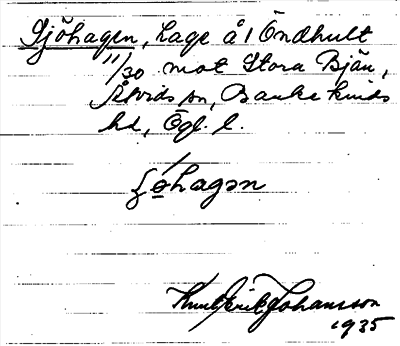 Sjöhagen, Hage å 1 Öndhult
11/30 mot Stora Bjän,
Åtvids sn, Bankekinds
hd, Ögl. l.
ʃö́hagən
Knut Erik Johansson
1935